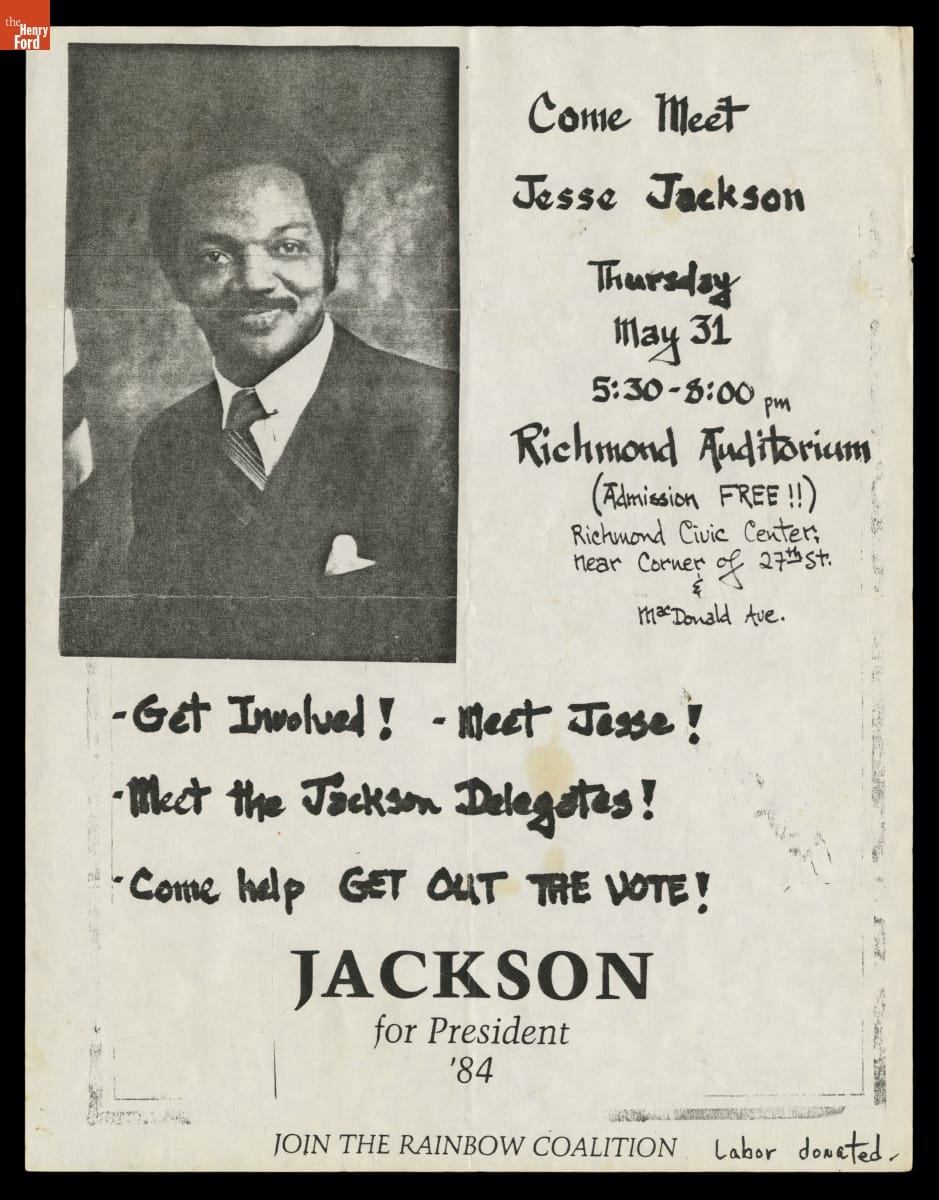 the
Henry
Ford
Come Meet
Jesse Jackson
Thursday
May 31
5:30-8:00 pm
Richmond Auditorium
(Admission FREE!!)
Richmond Civic Center,
near Corner of 27th St.
&
MacDonald Ave.
-Get Involved! -Meet Jesse!
-Meet the Jackson Delegates!
-Come help GET OUT THE VOTE!
JACKSON
for President
'84
JOIN THE RAINBOW COALITION Labor donated.